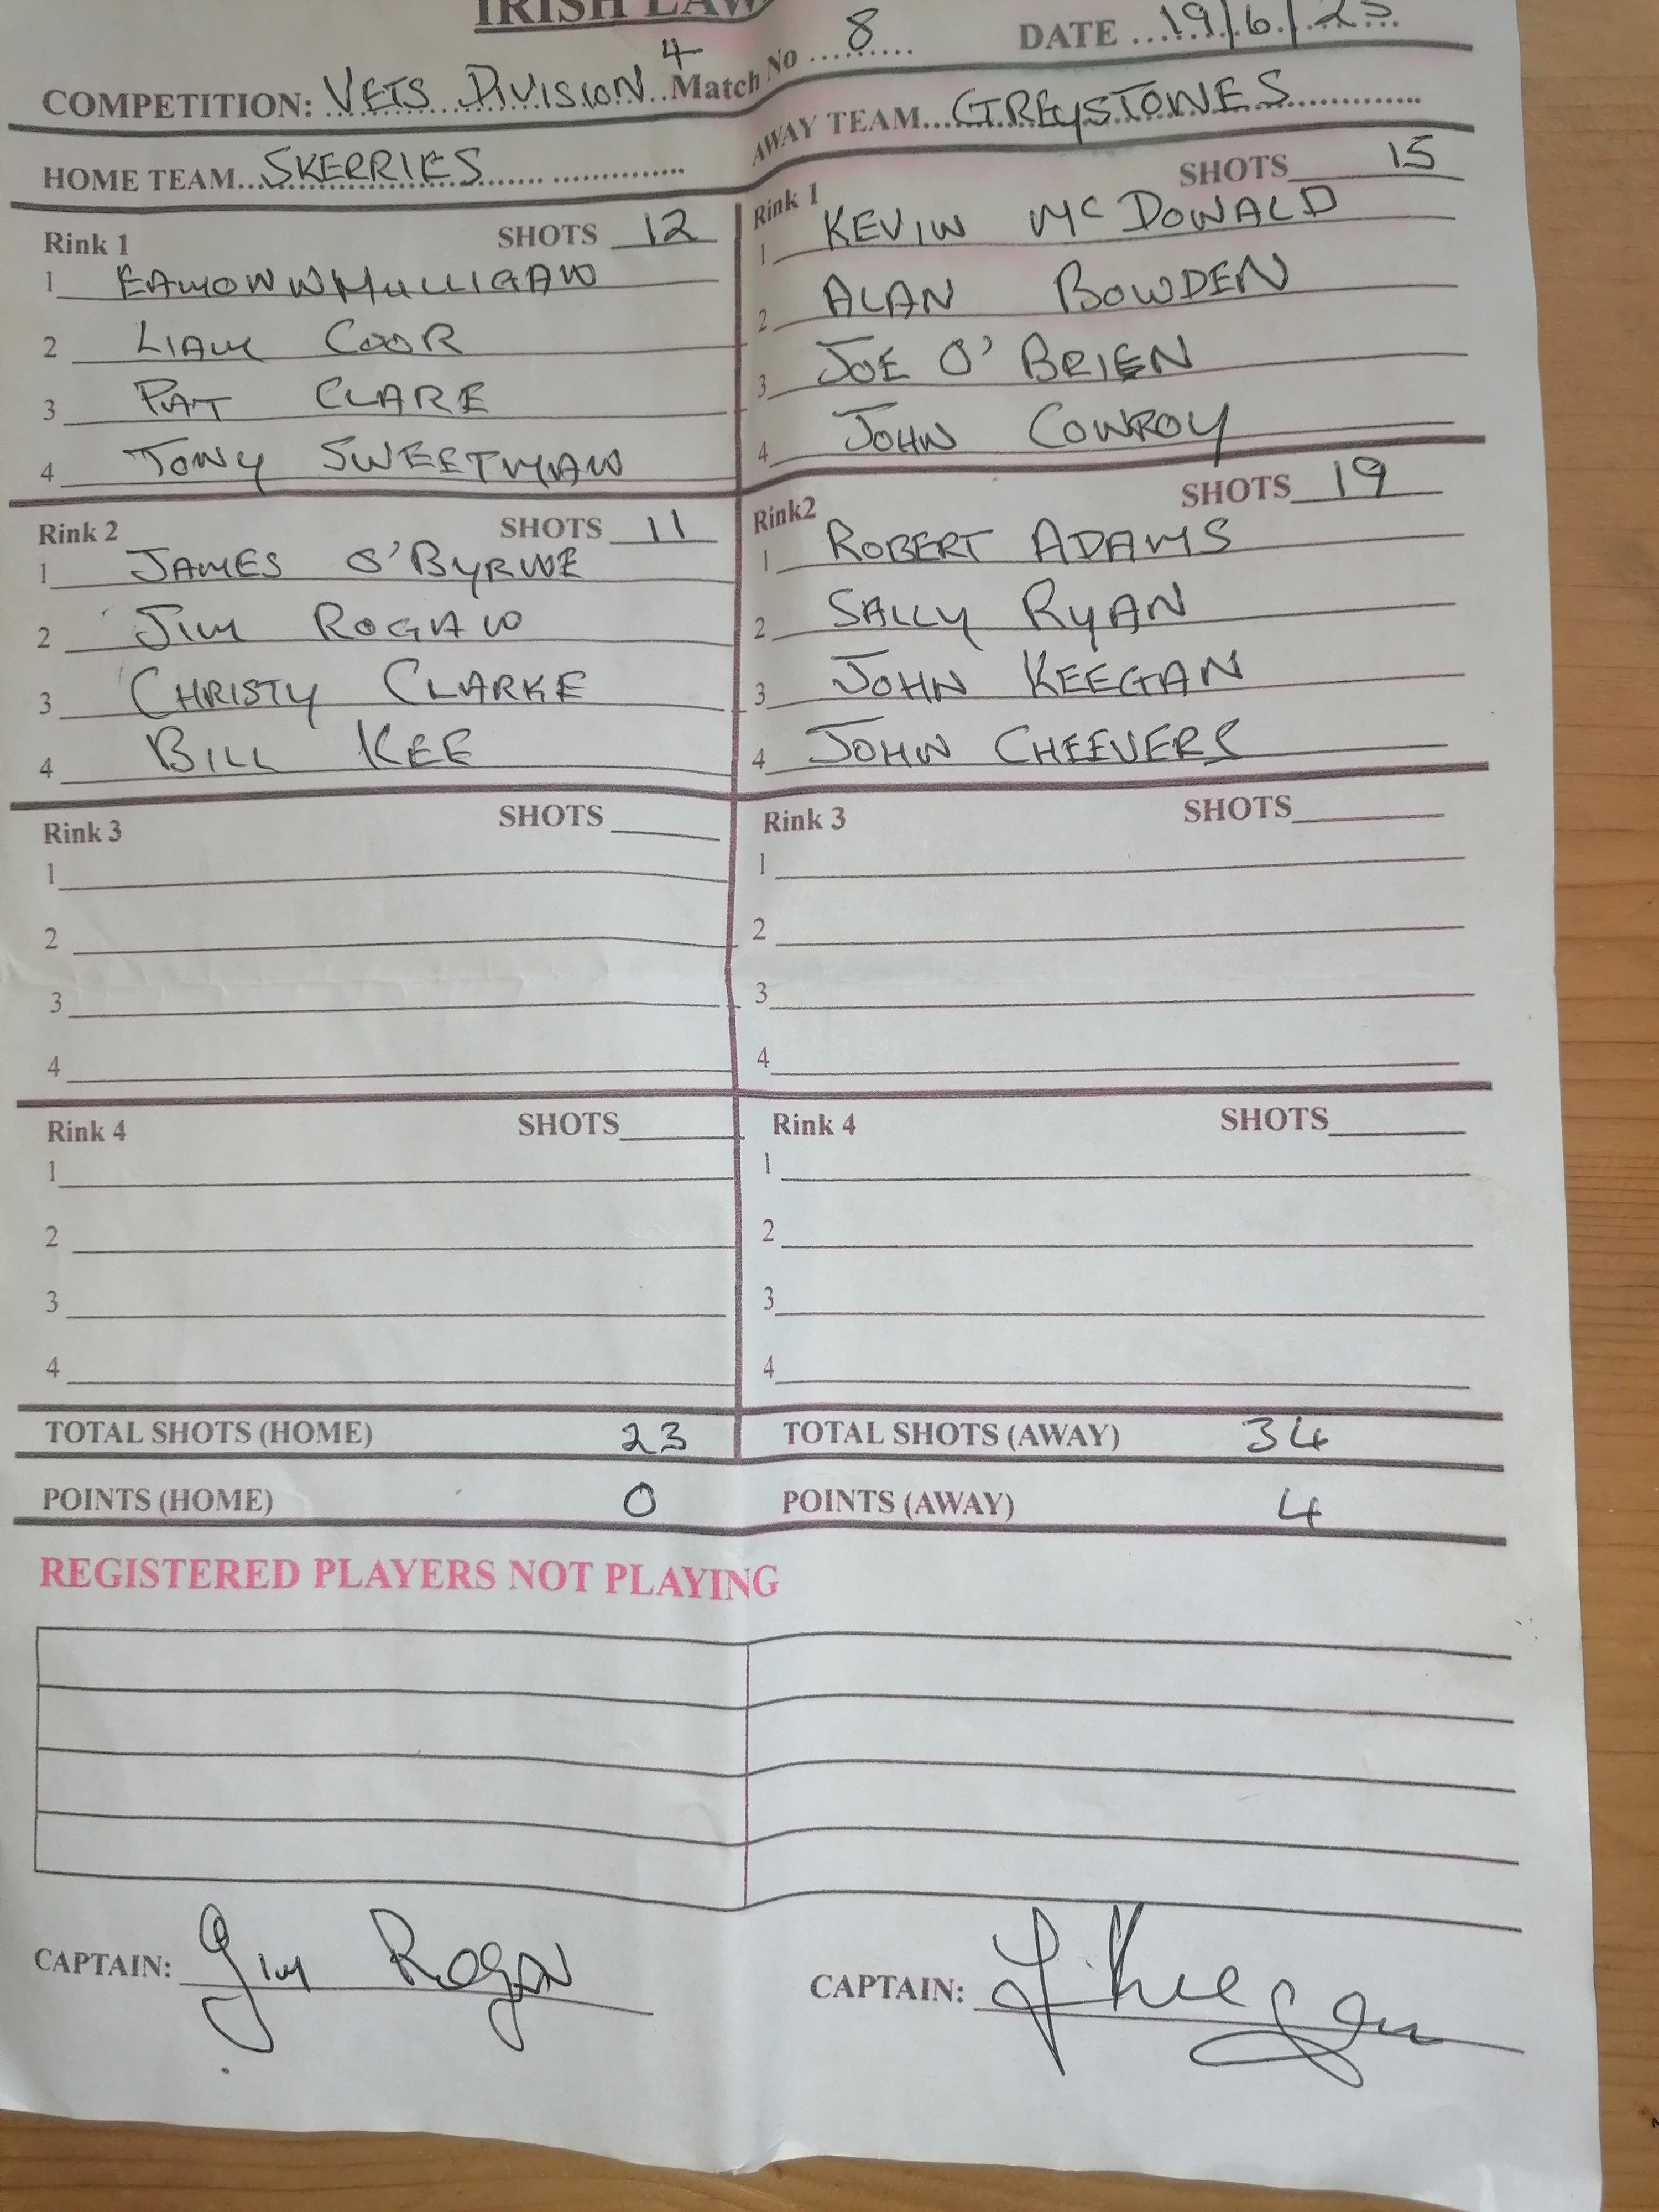 IRISH LAW
COMPETITION: VETS DIVISION 4 Match No 8 DATE 19/6/23
HOME TEAM SKERRIES
AWAY TEAM GREYSTONES
Rink 1 SHOTS 12
1 EAMONN MULLIGAN
2 LIAM COOR
3 PAT CLARE
4 TONY SWEETMAN
Rink 1 SHOTS 15
1 KEVIN McDONALD
2 ALAN BOWDEN
3 JOE O'BRIEN
4 JOHN CONROY
Rink 2 SHOTS 11
1 JAMES O'BYRNE
2 JIM ROGAN
3 CHRISTY CLARKE
4 BILL KEE
Rink2 SHOTS 19
1 ROBERT ADAMS
2 SALLY RYAN
3 JOHN KEEGAN
4 JOHN CHEEVERS
Rink 3 SHOTS
1
2
3
4
Rink 3 SHOTS
1
2
3
4
Rink 4 SHOTS
1
2
3
4
Rink 4 SHOTS
1
2
3
4
TOTAL SHOTS (HOME) 23
TOTAL SHOTS (AWAY) 34
POINTS (HOME) 0
POINTS (AWAY) 4
REGISTERED PLAYERS NOT PLAYING
CAPTAIN: Jim Rogan
CAPTAIN: J Keegan